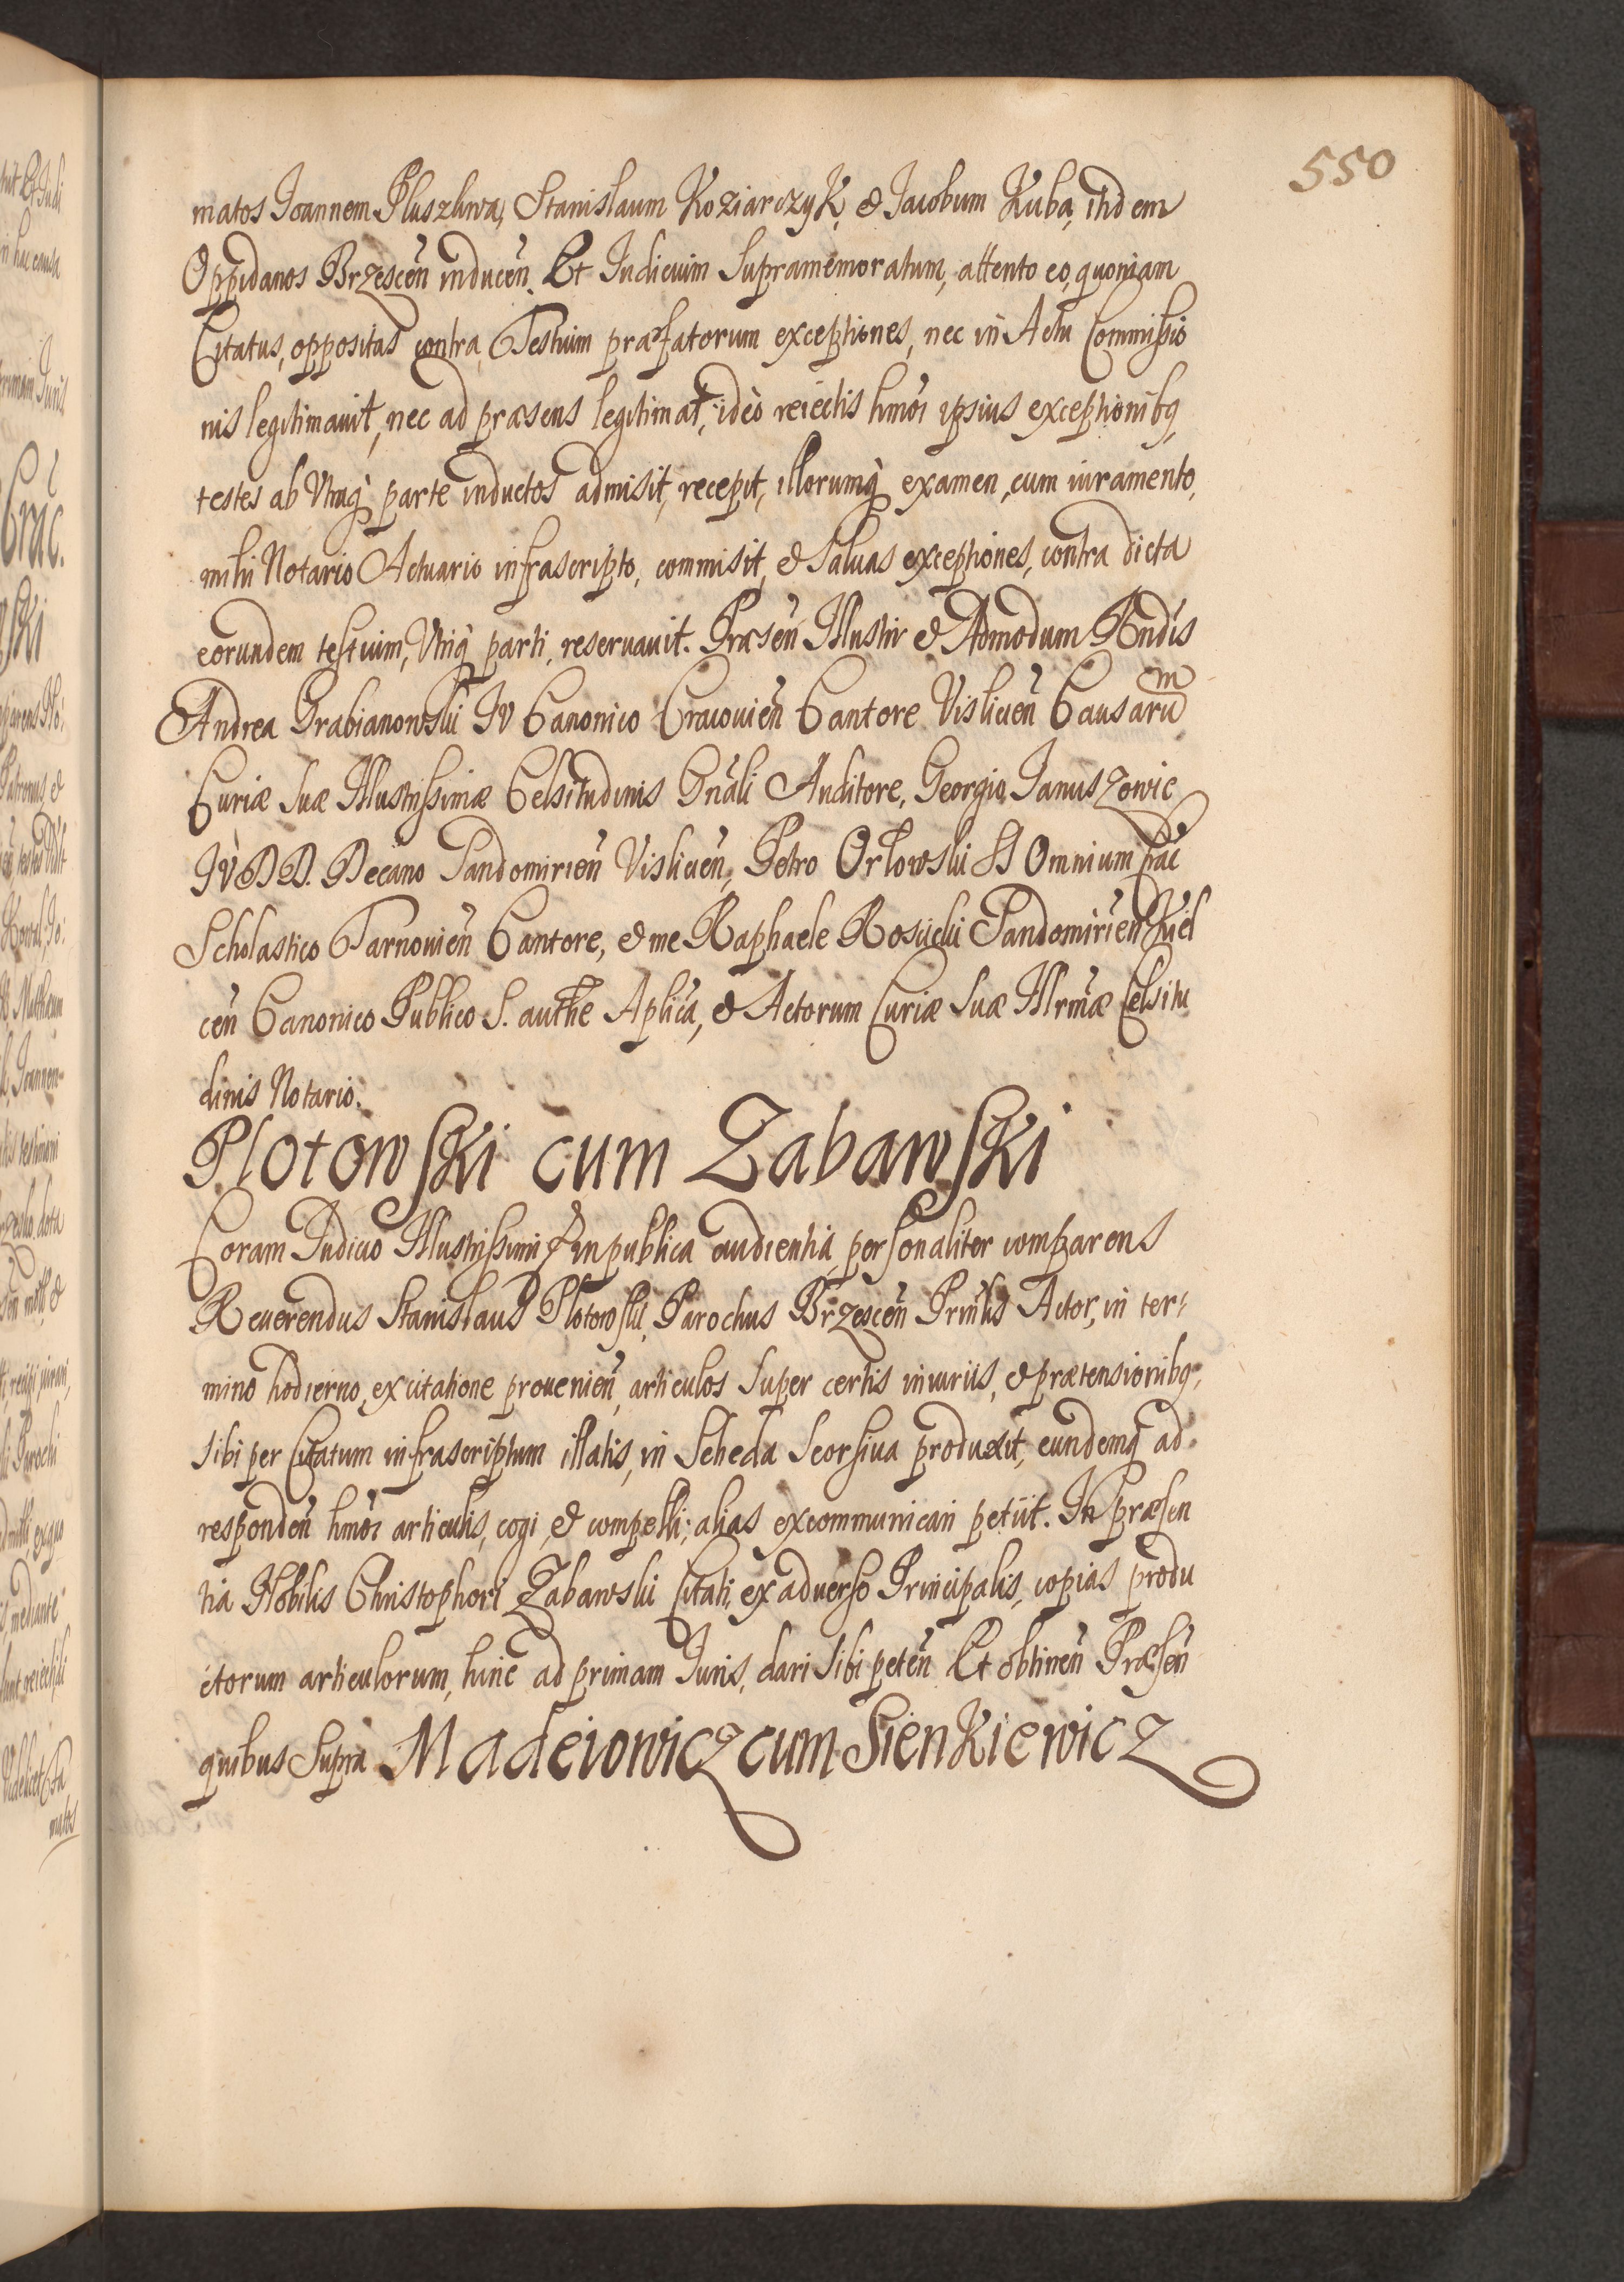 550
matos Joannem Pluszkwa, Stanislaum Koziarczyk, & Jacobum Kuba, itidem
Oppidanos Brzescen̄ inducen̄. Et Iudicium supramemoratum, attento eo, quoniam
Citatus, oppositas contra Testium præfatorum exceptiones, nec in Actu Commissio
nis legitimauit, nec ad præsens legitimat, ideò reiectis hmōi ipsius exceptionibq,
testes ab Vtraq̀ parte inductos admisit, recepit, illorumq̀ examen, cum iuramento,
mihi Notario Actuario infrascripto, commisit, & saluas exceptiones, contra dicta
eorundem testium, Vtriq̀ parti, reseruauit. Præsen̄ Illustri & Admodum Rn̄dis
Andrea Grabianowski IV Canonico Cracouien̄ Cantore Vislicien̄ Causarum
Curiæ suæ Illustrissimæ Celsitudinis Gnāli Auditore, Georgio Januszowic
IVDD. Decano Sandomirien̄ Vislicien̄, Petro Orlowski SS Omnium Crac
Scholastico Tarnouien̄ Cantore, & me Raphaele Rosicki Sandomirien̄ Kiel
cen̄ Canonico Publico S. autħe Aplicā, & Actorum Curiæ suæ Illrmæ Celsitu
dinis Notario.
Plotowski cum Zabawski
Coram Iudicio Illustrissimi in publica audientia, personaliter comparens
Reuerendus Stanislaus Plotowski, Parochus Brzescen̄ Prinlis Actor, in ter
mino hodierno, ex citatione prouenien̄, articulos super certis iniuriis, & prætensionibq,
sibi per Citatum infrascriptum illatis, in Scheda seorsiua produxit, eundemq̀ ad
responden̄ hmōi articulis, cogi, & compelli; alias excommunicari petiit. In præsen
tia Nobilis Christophori Zabawski Citati, ex aduerso Principalis, copias produ
ctorum articulorum, hinc ad primam Iuris, dari sibi peten̄. Et obtinen̄ Præsen̄
quibus supra Madeiowicz cum Sienkiewicz